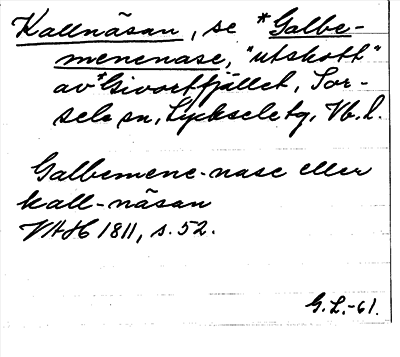 Kallnäsan, se *Galbe-
menenase, "utskott"
av *Givortfjället, Sor-
sele sn, Lycksele tg, Vb. l.
Galbemene-nase eller
kall-näsan
VAH 1811, s. 52.
G. L.-61.